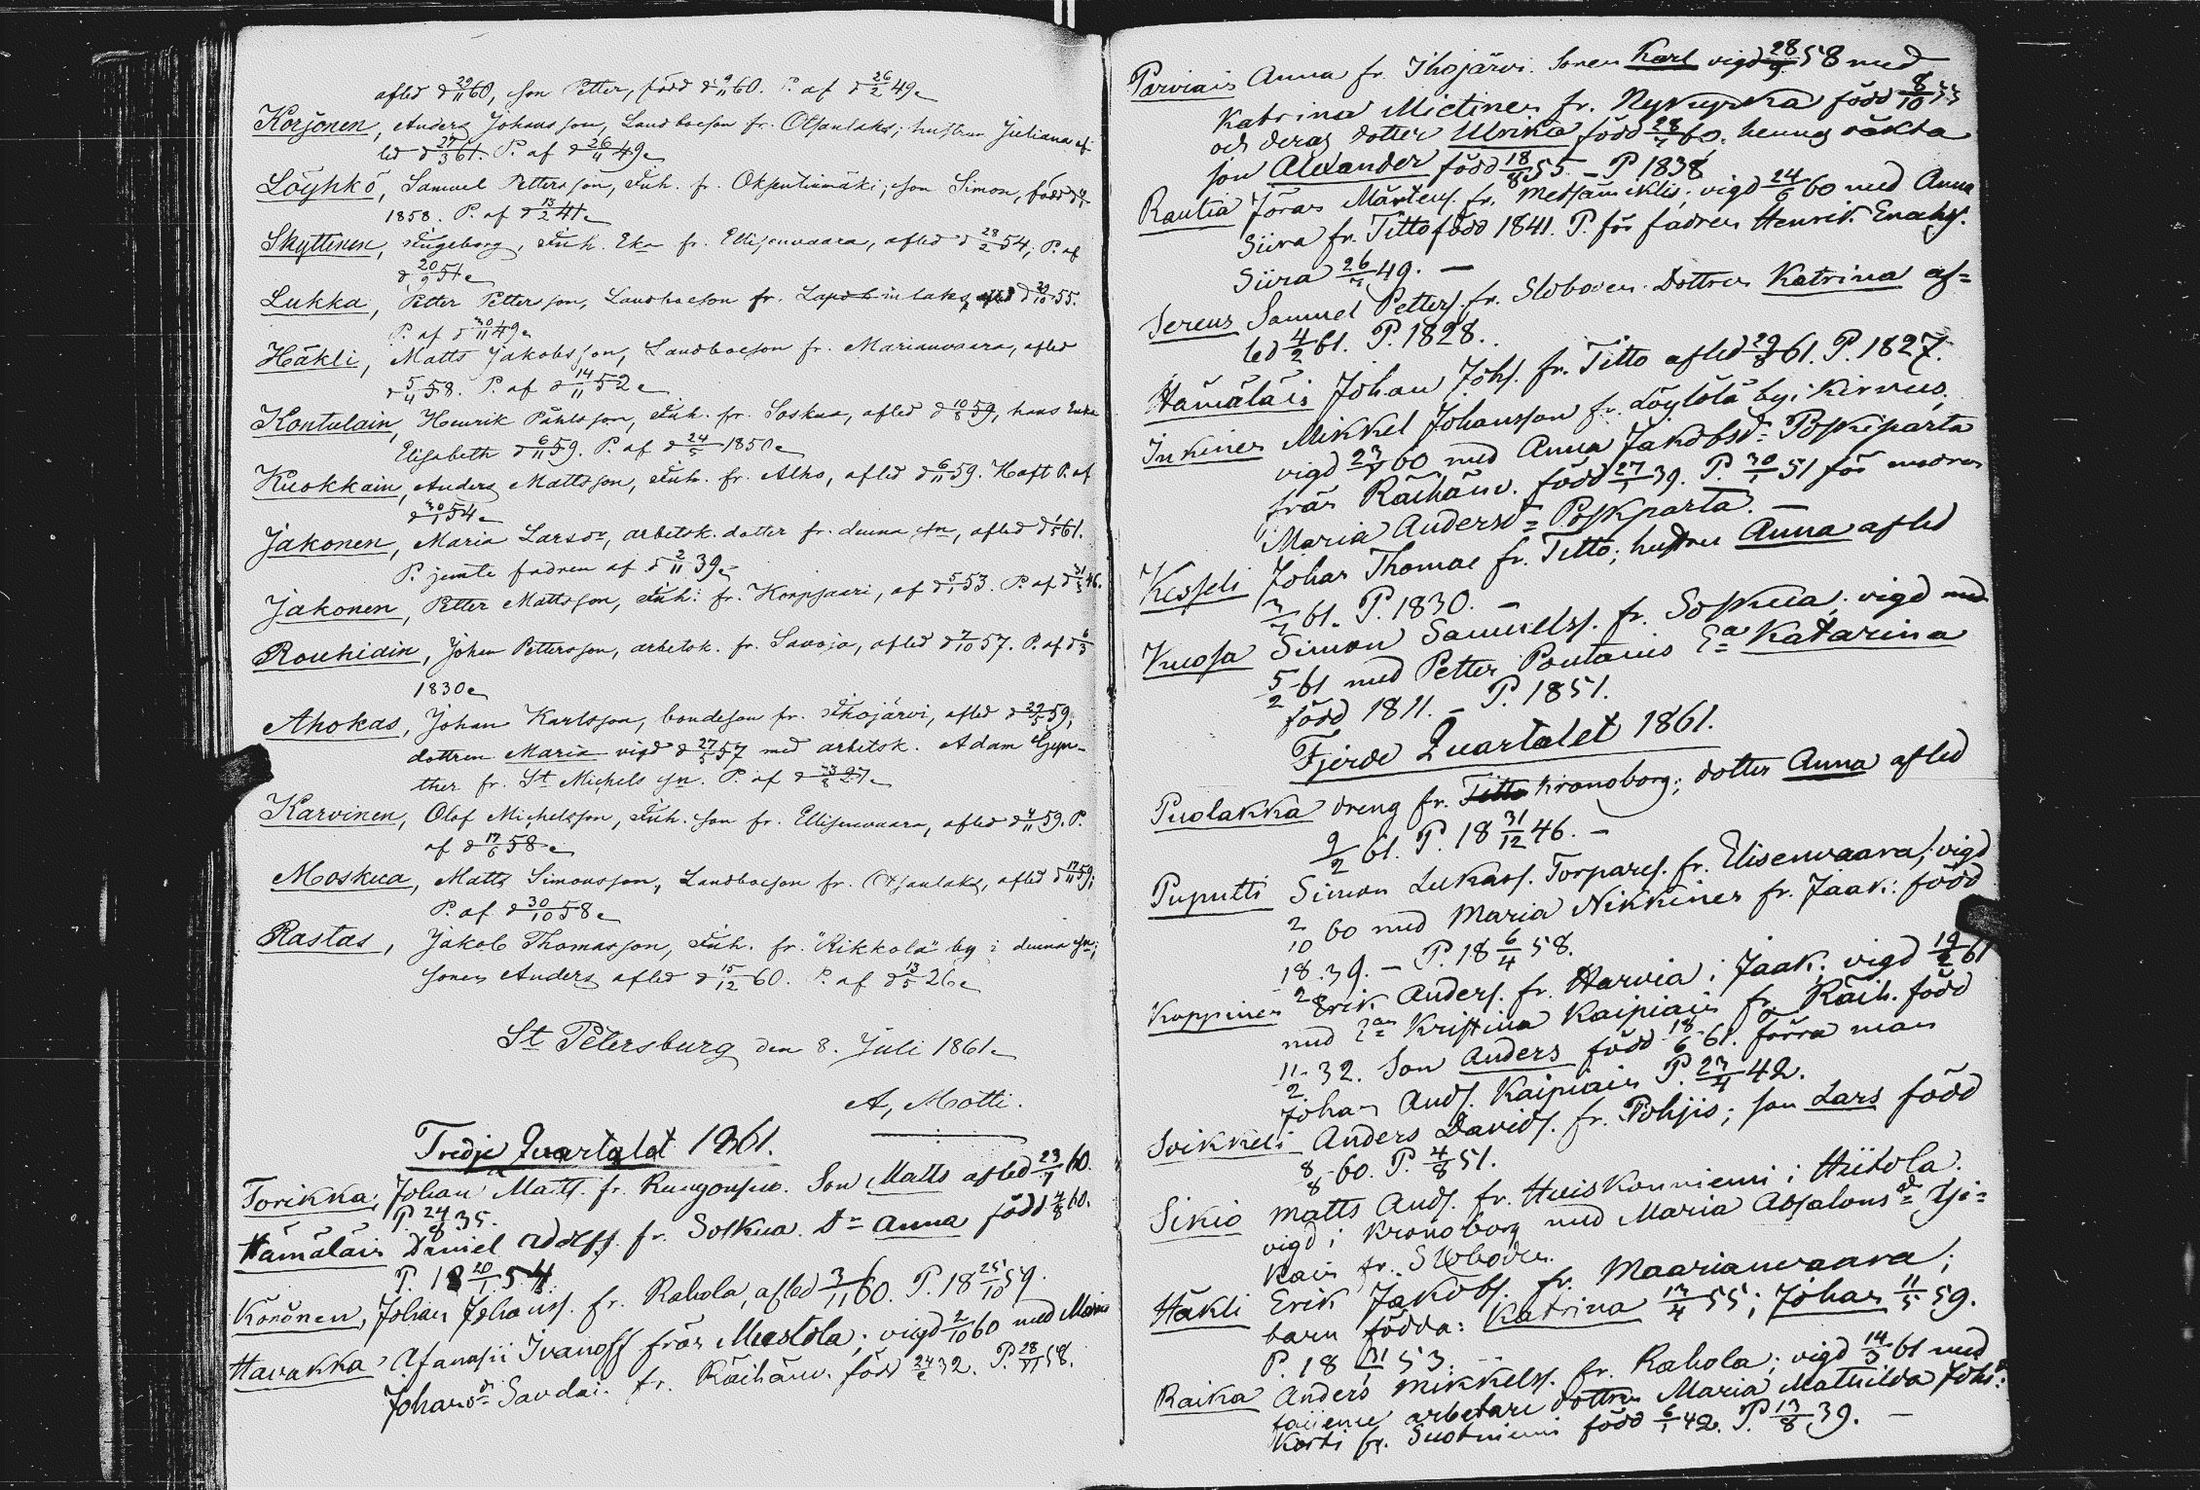 afled d 29/11 60, son Petter, född d 9/11 60. P. af d 26/2 49.
Korjonen, Anders Johansson, Landboeson fr. Otsanlaks; hustrun Juliana af-
led d 27/3 61. P. af d 26/11 49.
Löyhkö, Samuel Pettersson, Inh. fr. Oksentiemäki; son Simon, född d
1858. P. af d 13/2 41.
Skyttinen, Ingeborg, Inh. Eka fr. Ellisenvaara, afled d 28/2 54; P. af
d 20/9 51.
Lukka, Petter Pettersson, Landboeson fr. Lapinlaks, afled d 30/10 55.
P. af d 30/11 49.
Häkli, Matts Jakobsson, Landboeson fr. Marianvaara, afled
d 5/4 58. P. af d 14/11 52.
Kontulain, Henrik Påhlsson, Inh. fr. Soskua, afled d 10/8 59, hans Enka
Elisabeth d 6/11 59. P. af d 24/5 1850.
Kuokkain, Anders Mattsson, Inh. fr. Alho, afled d 6/11 59. Haft P. af
d 30/1 54.
Jakonen, Maria Larsdr, arbetsk. dotter fr. denna sn, afled d 1/5 61.
P. jemte fadren af d 2/11 39.
Jakonen, Petter Mattsson, Inh. fr. Korpsaari, af d 5/1 53. P. af d 31/3 46.
Rouhiain, Johan Pettersson, arbetsk. fr. Savoja, afled d 7/10 57. P. af d 6/3
1830.
Ahokas, Johan Karlsson, bondeson fr. Ihojärvi, afled d 29/5 59,
dottren Maria vigd d 27/5 57 med arbetsk. Adam Gyn-
ther fr. St Michels sn. P. af d 23/8 27.
Karvinen, Olof Michelsson, Inh. son fr. Ellisenvaara, afled d 4/11 59. P.
af d 17/6 58.
Moskua, Matts Simonsson, Landboeson fr. Otsanlaks, afled d 17/11 59;
P. af d 30/10 58.
Rastas, Jakob Thomasson, Inh. fr. "Rikkola" by i denna sn;
sonen Anders afled d 15/12 60. P. af d 13/5 26.
St Petersburg den 8. Juli 1861.
A, Motti.
Tredje Quartalet 1861.
Torikka, Johan Matts. fr. Kungonsuo. Son Matts afled 23/1 60.
P. 24/8 35.
Hämäläin Daniel Adolfs. fr. Soskua. Dr Anna född 4/8 60.
P. 18 20/1 54.
Korönen, Johan Johanss. fr. Rahola, afled 3/11 60. P. 18 25/10 59.
Havakka, Afanasii Ivanoff från Mustola; vigd 2/10 60 med Maria
Johansdr Savdai fr. Räihänv. född 24/2 32. P. 28/11 58.
Parviain Anna fr. Ihojärvi. Sonen Karl vigd 28/9 58 med
Katrina Mietinen fr. Nykyrka född 8/10 33
och deras dotter Ulrika född 28/7 60. hennes oäkta
son Alexander född 18/8 55. – P. 1838
Rautia Jöran Mårtens. fr. Metsämiklis; vigd 24/6 60 med Anna
Siira fr. Titto född 1841. P. för fadren Henrik Enahs.
Siira 26/7 49. –
Serens Samuel Petters. fr. Sloboden. Dottren Katrina af=
led 4/2 61. P. 1828.
Hämäläin Johan Johs. fr. Titto afled 29/8 61. P. 1827.
Inkinen Mikkel Johansson fr. Löylölä by i Kirvus,
vigd 23/9 60 med Anna Jakobsdr Poskiparta
från Räihänv. född 27/1 39. P. 30/1 51 för modren
Maria Andersdr Poskparta. –
Kesseli Johan Thomae fr. Titto; hustru Anna afled
3/7 61. P. 1830. –
Kuosa Simon Samuelss. fr. Soskua; vigd med
5/2 61 med Petter Pontanis Ea Katarina
född 1811. – P. 1851.
Fjerde Quartalet 1861.
Puolakka dreng fr. Titto Kronoborg; dotter Anna afled
9/2 61. P. 18 31/12 46. –
Puputti Simon Lukass. Torpares. fr. Elisenvaara; vigd
2/10 60 med Maria Nikkinen fr. Jaak: född
18/2 39. – P. 18 6/4 58.
Koppinen Erik Anders. fr. Harvia i Jaak; vigd 19/2 61
med Ea Kristina Kaipiain fr. Räih. född
11/2 32. Son Anders född 18/6 61. förra man
Johan Ands. Kaipiain P. 23/4 42.
Soikkeli Anders Davids. fr. Pohjis; son Lars född
8/8 60. P. 4/8 51.
Sikiö Matts Ands. fr. Huiskonniemi i Hiitola.
vigd i Kronoborg med Maria Absalonsdr Äjä=
käin fr. Sloboden.
Häkli Erik Jakobs. fr. Maarianvaara;
barn födda: Katrina 17/4 55; Johan 11/5 59.
P. 18 31/1 53. –
Raika Anders Mikkelss. fr. Rahola; vigd 14/3 61 med
arbetare dottren Maria Mathilda Johsdr
Korti fr. Suotniemi född 6/1 42. P. 13/8 39. –